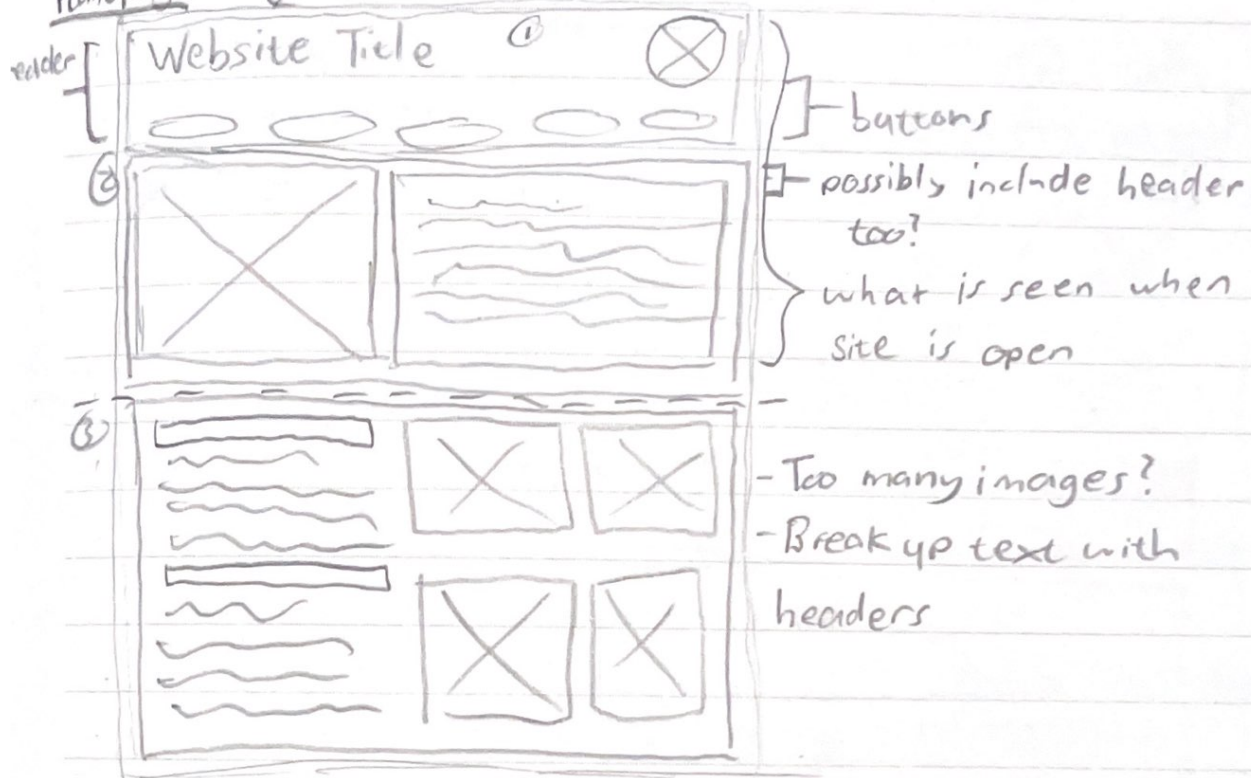 Website Title
①
eader
buttons
②
possibly include header
too?
what is seen when
site is open
③
- Too many images?
- Break up text with
headers